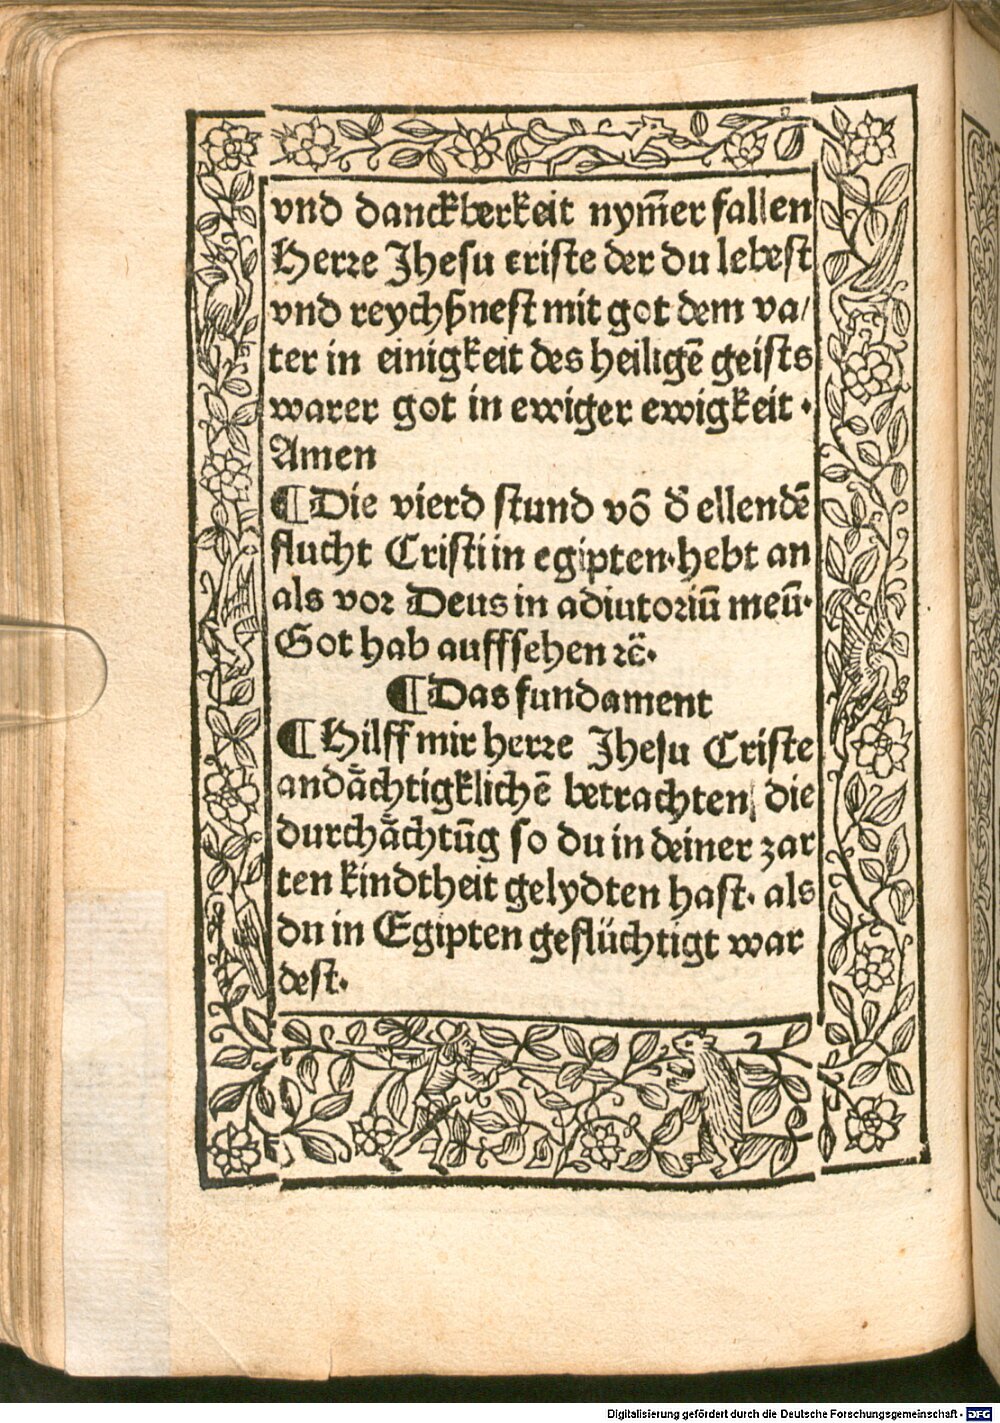 vnd danckberkeit nym̄er fallen
Herꝛe Jhesu criste der du lebest
vnd reychßnest mit got dem va/
ter in einigkeit des heiligē geists
warer got in ewiger ewigkeit ·
Amen
¶ Die vierd stund vō d̄ ellendē
flucht Cristi in egipten· hebt an
als voꝛ Deus in adiutoꝛiū meū·
Got hab auffsehen ꝛc̄·
¶ Das fundament
¶ Hilff mir herꝛe Jhesu Criste
andaͤchtigklichē betrachten die
durchaͤchtūg so du in deiner zar
ten kindtheit gelydten hast· als
du in Egipten geflüchtigt war
dest·
Digitalisierung gefördert durch die Deutsche Forschungsgemeinschaft - DFG